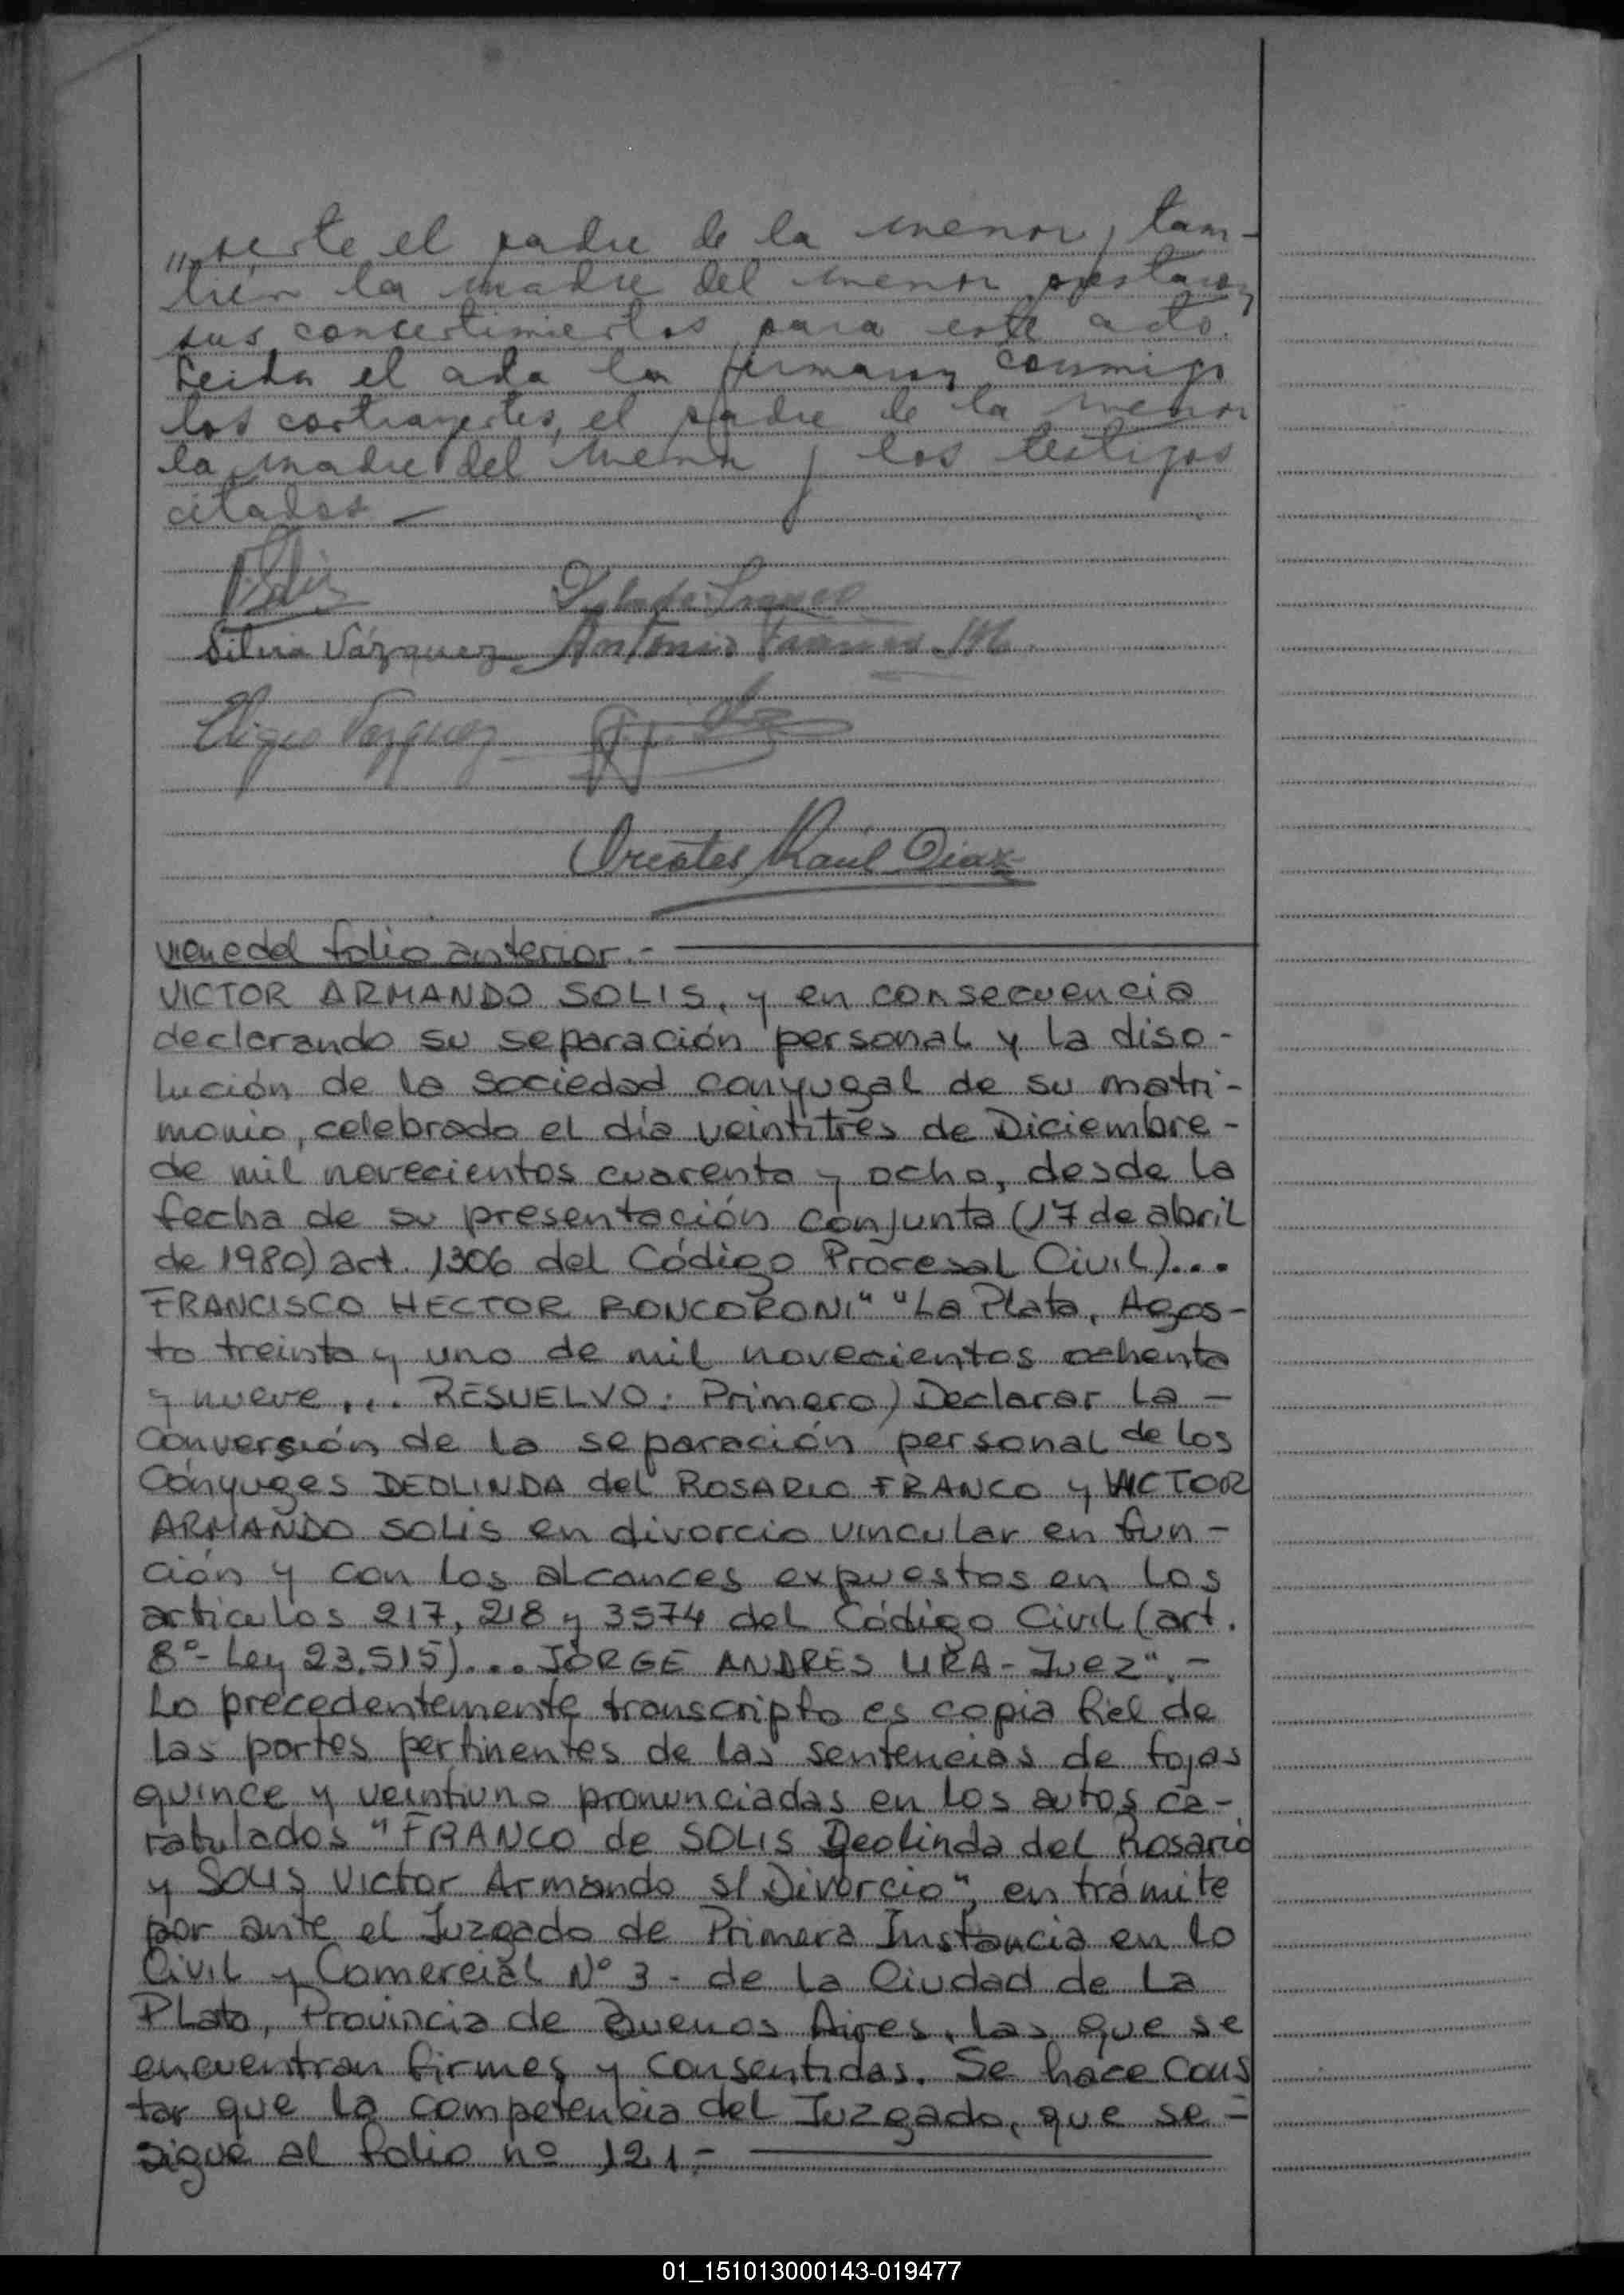 "sente el padre de la menor, tam-
bién la madre del menor prestaron
sus consentimientos para este acto.
Leida el acta la firmaron conmigo
los contrayentes, el padre de la menor
la madre del menor y los testigos
citados -
Silvia Vázquez Antonio
Vazquez
Orestes Raúl Diaz
viene del folio anterior.-
VICTOR ARMANDO SOLIS, y en consecuencia
declarando su separación personal y la diso-
lución de la sociedad conyugal de su matri-
monio, celebrado el día veintitrés de Diciembre-
de mil novecientos cuarenta y ocho, desde la
fecha de su presentación conjunta (17 de abril
de 1980) art. 1306 del Código Procesal Civil)...
FRANCISCO HECTOR RONCORONI" "La Plata, Agos-
to treinta y uno de mil novecientos ochenta
y nueve... RESUELVO: Primero) Declarar la -
Conversión de la separación personal de los
Cónyuges DEOLINDA del ROSARIO FRANCO y VICTOR
ARMANDO SOLIS en divorcio vincular en fun-
ción y con los alcances expuestos en los
articulos 217, 218 y 3574 del Código Civil (art.
8º- Ley 23.515)... JORGE ANDRÉS LIRA - Juez".-
Lo precedentemente transcripto es copia fiel de
las partes pertinentes de las sentencias de fojas
quince y veintiuno pronunciadas en los autos ca-
ratulados "FRANCO de SOLIS Deolinda del Rosario
y SOLIS Victor Armando s/ Divorcio", en trámite
por ante el Juzgado de Primera Instancia en lo
Civil y Comercial Nº 3 - de la Ciudad de La
Plata, Provincia de Buenos Aires, las que se
encuentran firmes y consentidas. Se hace cons
tar que la competencia del Juzgado, que se -
sigue al folio nº 121-
01_151013000143-019477